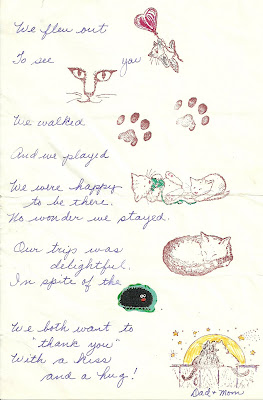 We flew out
To see you
We walked
And we played
We were happy
to be there.
No wonder we stayed.
Our trip was
delightful.
In spite of the
We both want to
"thank you"
With a kiss
and a hug!
Dad + Mom